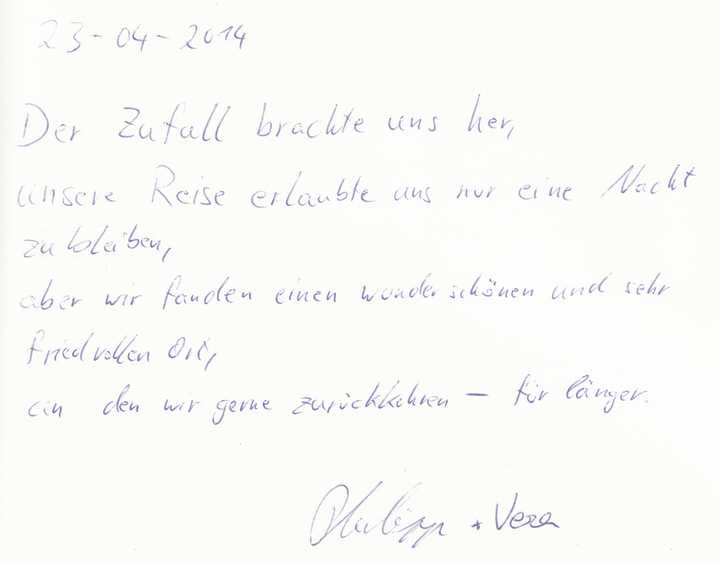 23-04-2014
Der Zufall brachte uns her,
unsere Reise erlaubte uns nur eine Nacht
zu bleiben,
aber wir fanden einen wunderschönen und sehr
friedvollen Ort,
an den wir gerne zurückkehren – für länger.
Philipp + Vera